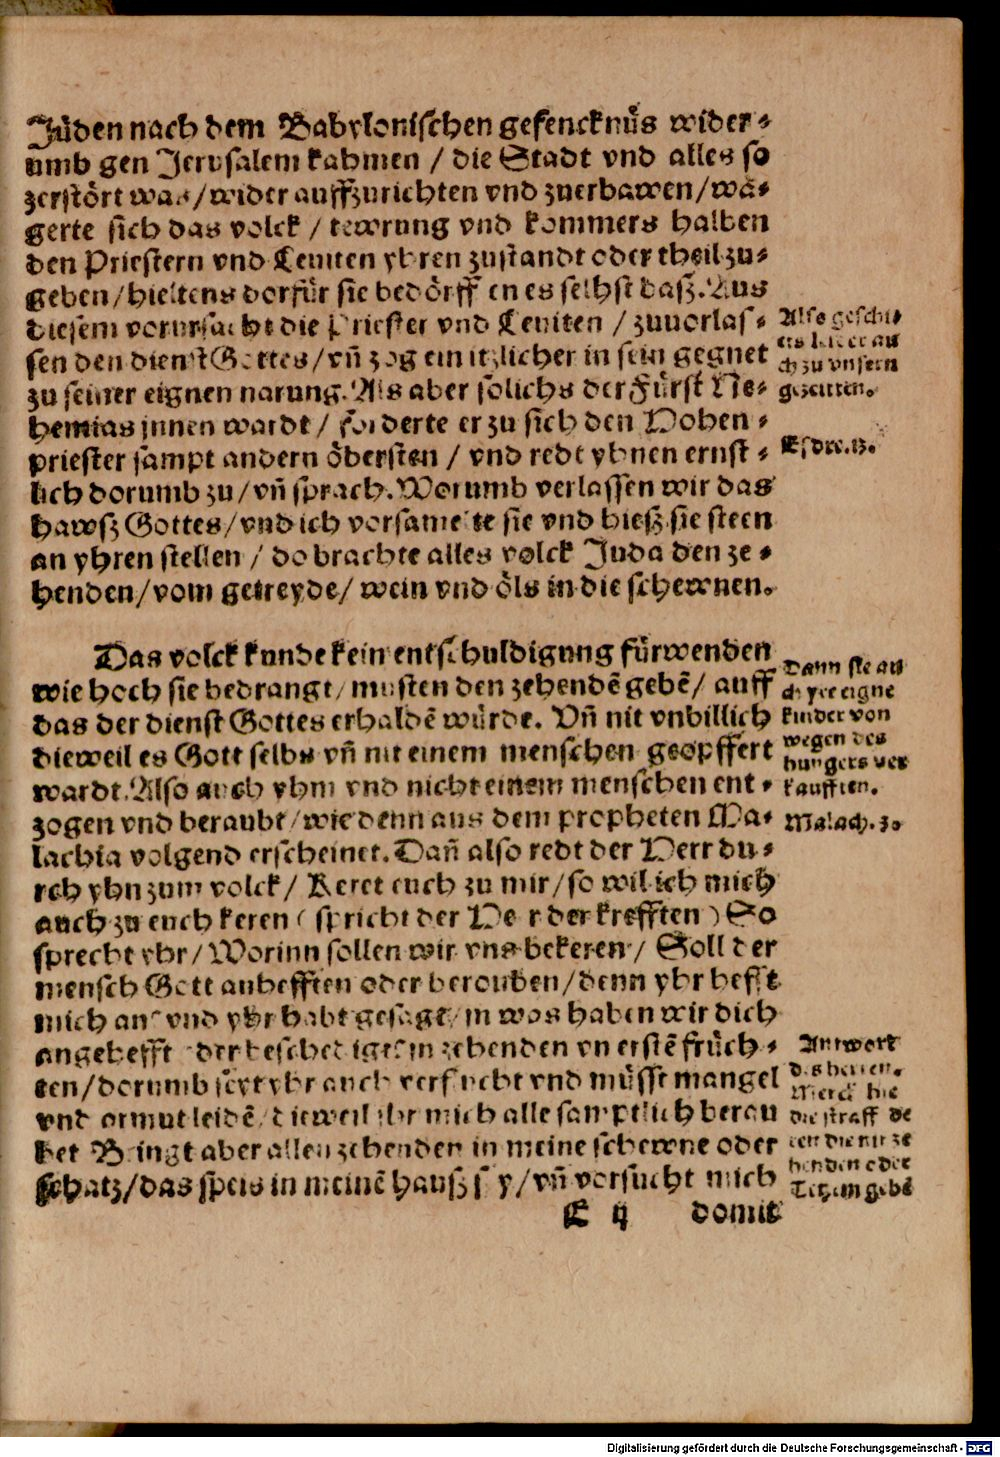 Jüden nach dem Babylonischen gefencknüs wider-
umb gen Jerusalem kahmen / die Stadt vnd alles so
zerstört was / wider auffzurichten vnd zuerbawen / wä-
gerte sich das volck / tewrung vnd kommers halben
den Priestern vnd Leuiten yhren zustandt oder theil zu-
geben / hieltens dorfür sie bedörfften es selbst basz. Aus
diesem vorursacht die Priester vnd Leuiten / zuuorlas-
sen den dienst Gottes / vñ zog ein itzlicher in sein gegnet
zu seiner eignen narung. Als aber solichs der Fürst Ne-
hemias jnnen wardt / forderte er zu sich den Hohen-
priester sampt andern öbersten / vnd redt yhnen ernst-
lich dorumb zu / vñ sprach. Worumb verlassen wir das
hawsz Gottes / vnd ich vorsamelte sie vnd hiesz sie steen
an yhren stellen / do brachte alles volck Juda den ze-
henden / vom getreyde / wein vnd öls in die schewnen.
Also geschi-
gezeitten.
Esdre. 13.
Das volck kunde kein entschuldigung fürwenden
wie hoch sie bedrangt / musten den zehendē gebē / auff
das der dienst Gottes erhaldē würde. Vñ nit vnbillich
dieweil es Gott selbs vñ nit einem menschen geopffert
wardt. Also auch yhm vnd nicht einem menschen ent-
zogen vnd beraubt / wie denn aus dem propheten Ma-
lachia volgend erscheinet. Dañ also redt der Herr du-
rch yhn zum volck / Keret euch zu mir / so wil ich mich
auch zu euch keren ( spricht der Herr der krefften ) So
sprecht yhr / Worinn sollen wir vns bekeren / Soll der
mensch Gott anhefften oder berouben / denn yhr hefft
mich an / vnd yhr habt gesagt / in was haben wir dich
angehefft der zehenden vn erstē früch-
ten / dorumb seyt yhr auch verflucht vnd müsst mangel
vnd ormut leidē / dieweil ihr mich alle samptlich berau
bet Bringt aber allen zehenden in meine schewne oder
schatz / das speis in meinē hausz sey / vñ vorsucht mich
Dann sie au
ch yre eigne
kinder von
wegen des
hungers ver
kaufften.
Malach. 3.
Antwort
des herren.
Merck hie
die straff de
ren die nit ze
henden oder
Tetzem gebē
E ij domit
Digitalisierung gefördert durch die Deutsche Forschungsgemeinschaft - DFG